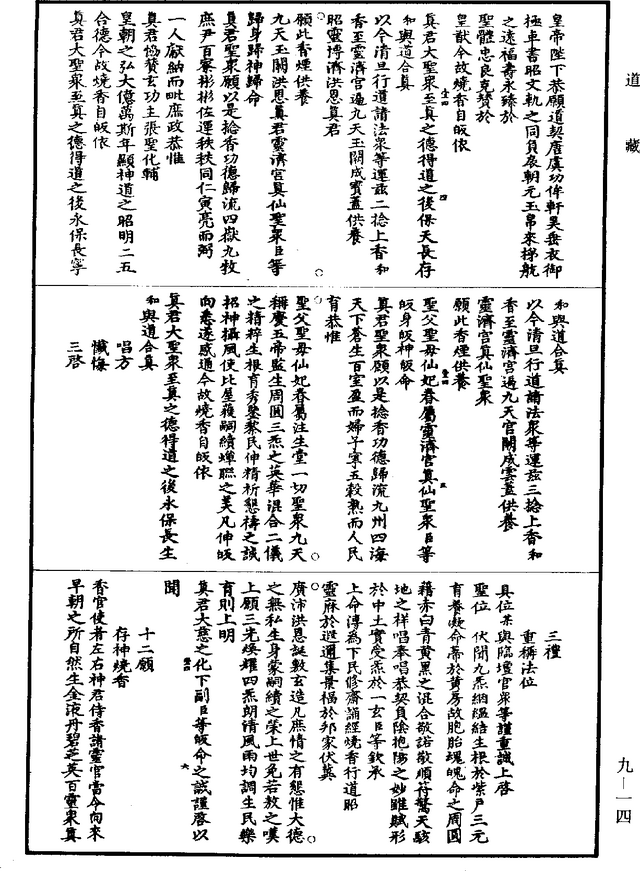 道藏
皇帝陛下恭願道契唐虞功侔軒昊垂衣御
極車書昭文軌之同負扆朝元玉帛來梯航
之遠福壽永臻於
聖體忠良克贊於
皇猷今故燒香自皈依
真君大聖衆至真之德得道之後保天長存
和與道合真
以今清旦行道請法衆等運茲二捻上香和
香至靈濟宮遍九天玉闕成寶蓋供養
昭靈博濟洪恩真君
願此香煙供養
九天玉闕洪恩真君靈濟宮真仙聖衆臣等
歸身歸神歸命
真君聖衆願以是捻香功德歸流四嶽九牧
庶尹百寮彬彬佐運秩秩同仁寅亮而弼
一人獻納而毗庶政恭惟
真君協贊玄功主張聖化輔
皇朝之弘大億萬斯年顯神道之昭明二五
合德今故燒香自皈依
真君大聖衆至真之德得道之後永保長寧
和與道合真
以今清旦行道請法衆等運茲三捻上香和
香至靈濟宮遍九天官闕成雲蓋供養
靈濟宮真仙聖衆
願此香煙供養
聖父聖母仙妃眷屬靈濟宮真仙聖衆臣等
皈身皈神皈命
真君聖衆願以是捻香功德歸流九州四海
天下蒼生百室盈而婦子寧五穀熟而人民
育恭惟
聖父聖母仙妃眷屬注生堂一切聖衆九天
稱慶五帝監生周圓三炁之英華混合二儀
之精粹生根育秀毓黎民伸精祈懇禱之誠
招神攝風使比屋獲嗣續蟬聯之美凡伸皈
向悉遂感通今故燒香自皈依
真君大聖衆至真之德得道之後永保長生
和與道合真
唱方
懺悔
三啓
三禮
重稱法位
具位臣與臨壇官衆等謹重誠上啓
聖位 伏聞九炁納緼結生根於紫戶三元
育養凝命蒂於黃房故胞胎魂魄命之周圓
藉赤白青黃黑之混合敬諾敬順符驚天駭
地之祥唱奉唱恭契負陰抱陽之妙雖賦形
於中土實受炁於一玄臣等欽承
上命漙爲下民修齋誦經燒香行道昭
靈庥於遐邇集景福於邦家伏冀
廣沛洪恩誕敷玄造凡庶情之有懇惟大德
之無私生身蒙嗣續之榮上世免若敖之嘆
上願三光煥耀四炁朗清風雨均調生民樂
育則上明
真君大慈之化下副臣等皈命之誠謹啓以
聞
十二願
存神燒香
香官使者左右神君侍香諸靈官當今向來
早朝之所自然生金液丹碧芝英百靈衆真
九—一四